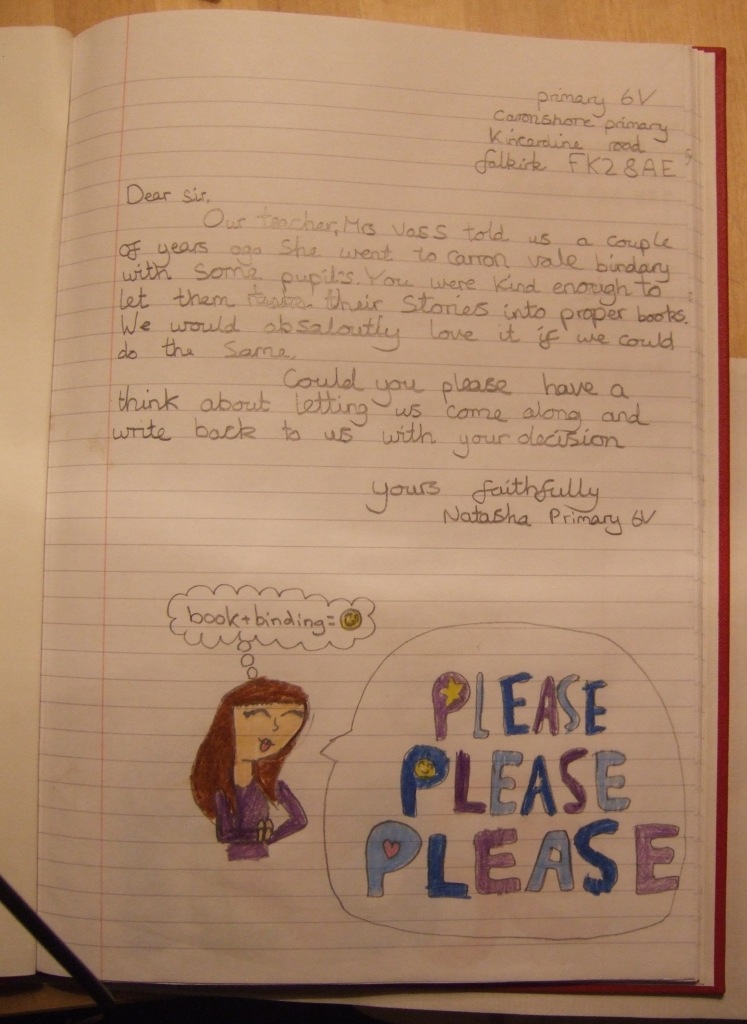 primary 6V
Caronshore primary
Kincardine road
falkirk FK2 8AE
Dear sir,
Our teacher, Mrs Vass told us a couple
of years ago She went to Carron vale bindary
with some pupils. You were kind enough to
let them their Stories into proper books.
We would absaloutly love it if we could
do the Same.
Could you please have a
think about letting us come along and
write back to us with your decision
yours faithfully
Natasha Primary 6V
book+binding=
PLEASE
PLEASE
PLEASE